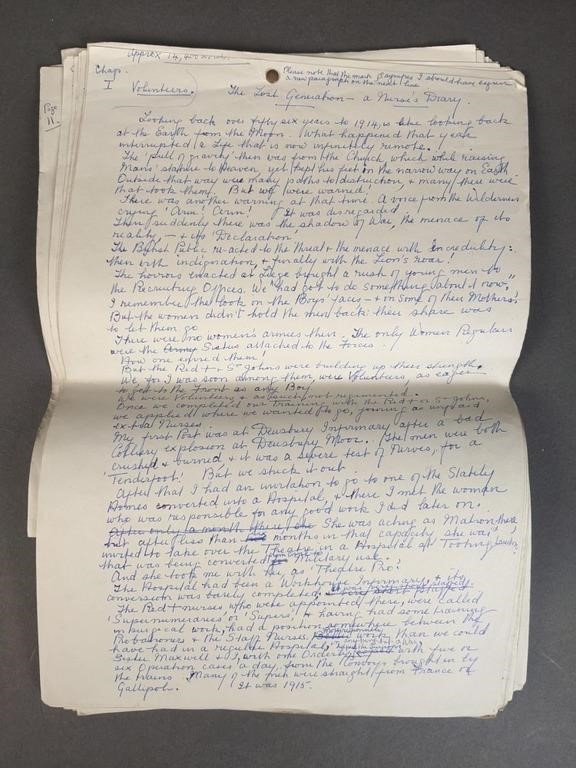 Approx 14,400 words
Please note that the mark [ signifies I should have begun
a new paragraph on the next line
Chap.
I
Volunteers.
Page
11.
The Lost Generation – a Nurse's Diary.
Looking back over fifty six years to 1914, is like looking back
at the Earth from the Moon. What happened that year
interrupted a Life that is now infinitely remote.
The 'pull of gravity' then was from the Church, which while raising
Mans' stature to Heaven, yet kept his feet on the narrow way on Earth.
Outside that way were many paths to destruction, & many there were
that took them. But we were warned!
There was another warning at that time. A voice from the Wilderness
crying 'Arm! Arm!' It was disregarded.
Then suddenly there was the shadow of War, the menace of its
reality, – & its Declaration!
The British Public re-acted to the Threat & the menace with Incredulity:
then with indignation & finally with the Lion's roar!
The horrors enacted at Liege brought a rush of young men to
the Recruiting Offices. We "had got to do something about it now"
I remember the look on the Boys' faces – & on some of their Mothers!
But the women didn't hold the men back: their share was
to let them go
There were no women's armies then. The only Women Regulars
were the Army Sisters attached to the Forces.
How one envied them!
But the Red + & St Johns were building up their strength.
We, for I was soon among them, were Volunteers, as eager
to get to the Front as any Boy!
We were Volunteers & as such not regimented.
Once we completed our training with the Red + or St Johns,
we applied where we wanted to go, joining as unpaid
extra Nurses.
My first Post was at Dewsbury Infirmary after a bad
Colliery explosion at Dewsbury Moor. The men were both
crushed & burned & it was a severe test of Nerves, for a
Tenderfoot! But we stuck it out.
After that I had an invitation to go to one of the Stately
Homes converted into a Hospital, & there I met the woman
who was responsible for any good work I did later on.
After only a month there she She was acting as Matron there
but after less than months in that capacity she was
invited to take over the Theatre in a Hospital at Tooting, London
that was being converted for Military use.
And she took me with her, as 'Theatre Pro'.
The Hospital had been a Workhouse Infirmary & its
conversion was barely completed.
The Red + nurses who were appointed there, were called
'Supernumeraries' or 'Supers', & having had some training
in surgical work, had a position somewhere between the
Probationers & the Staff Nurses. work than we could
have had in a regular Hospital.
Sister Maxwell & I, with one Orderly with five or
six Operation cases a day, from the Convoys brought in by
the trains. Many of the men were straight from France or
Gallipoli. It was 1915.